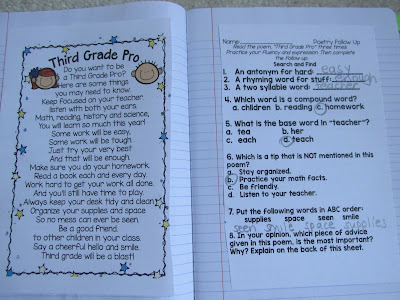 Third Grade Pro
Do you want to be
a Third Grade Pro?
Here are some things
you may need to know.
Keep Focused on your teacher.
listen with both your ears.
Math, reading, history and science,
You will learn so much this year!
Some work will be easy,
Some work will be tough
Just try your very best
And that will be enough
Make sure you do your homework.
Read a book each and every day.
Work hard to get your work all done.
And you'll still have time to play.
Always keep your desk tidy and clean
Organize your supplies and space
So no mess can ever be seen.
Be a good friend.
to other children in your class.
Say a cheerful hello and smile.
Third grade will be a blast!
Name Poetry Follow Up
Read the poem, "Third Grade Pro" three times.
Practice your fluency and expression. Then complete
the follow up.
Search and Find
1. An antonym for hard: easy
2. A rhyming word for stuff: enough
3. A two syllable word: teacher
4. Which word is a compound word?
a. children b. reading c. homework
5. What is the base word in "teacher"?
a. tea b. her
c. each d. teach
6. Which is a tip that is NOT mentioned in this
poem?
a. Stay organized.
b. Practice your math facts.
c. Be friendly.
d. Listen to your teacher.
7. Put the following words in ABC order:
supplies space seen smile
seen smile space supplies
8. In your opinion, which piece of advice
given in this poem, is the most important?
Why? Explain on the back of this sheet.